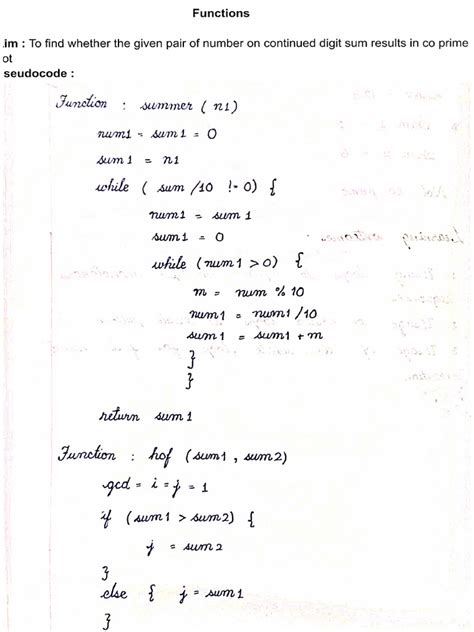 Functions
.im : To find whether the given pair of number on continued digit sum results in co prime
ot
seudocode :
Function : summer ( n1)
num1 = sum1 = 0
sum1 = n1
while ( sum /10 != 0) {
num1 = sum1
sum1 = 0
while (num1 > 0) {
m = num % 10
num1 = num1 /10
sum1 = sum1 + m
}
}
return sum1
Function : hof (sum1 , sum2)
gcd = i = j = 1
if (sum1 > sum2) {
j = sum2
}
else { j = sum1
}